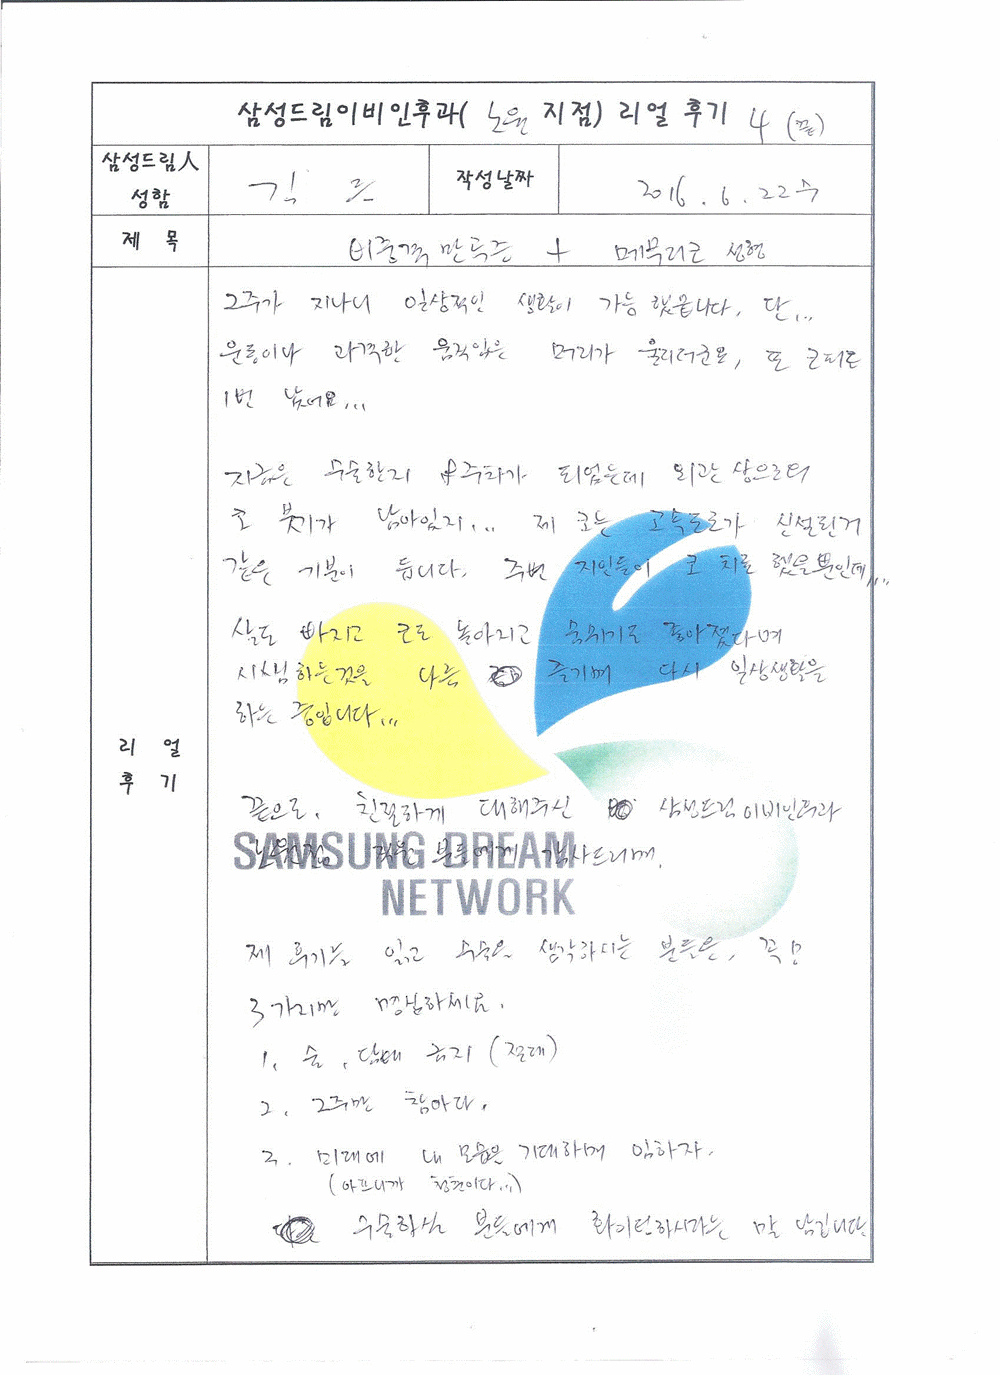 삼성드림이비인후과( 노원 지점) 리얼 후기 4 (끝)
삼성드림人 성함
김
작성날짜
2016. 6. 22 수
제 목
비중격 만곡증 + 메부리코 성형
리 얼
후 기
2주가 지나니 일상적인 생활이 가능 했습니다. 단...
운동이나 과격한 움직임은 머리가 울리더군요, 또 코피도
1번 났어요...
지금은 수술한지 주차가 되었는데 외관 상으로의
코 붓기가 남아있지... 제 코는 고속도로가 신설된거
같은 기분이 듭니다. 주변 지인들이 코 치료 했을뿐인데...
살도 빠지고 코도 높아지고 분위기도 좋아졌다며
시샘하는것을 나름 즐기며 다시 일상생활을
하는 중입니다...
끝으로, 친절하게 대해주신 삼성드림이비인후과
노원점 직원 분들에게 감사드리며.
SAMSUNG DREAM
NETWORK
제 후기를 읽고 수술을 생각하시는 분들은, 꼭!
3가지만 명심하세요.
1. 술, 담배 금지 (절대)
2. 2주만 참아다.
3. 미래에 내 모습을 기대하며 임하자.
(아프니까 청춘이다...)
수술하실 분들에게 화이팅하시라는 말 남깁니다